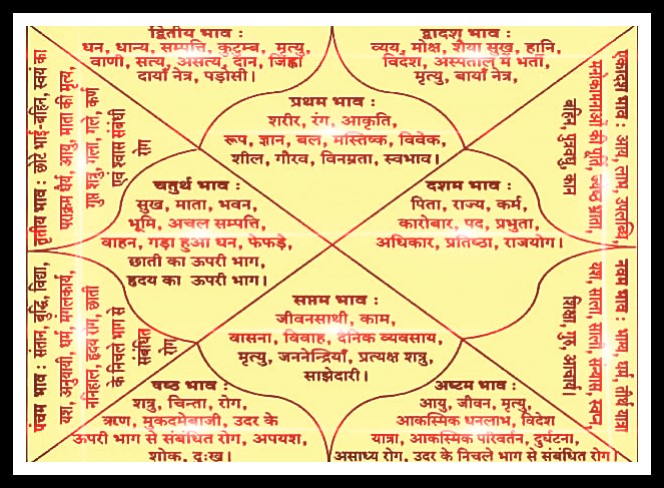 द्वितीय भाव :
धन, धान्य, सम्पत्ति, कुटुम्ब, मृत्यु,
वाणी, सत्य, असत्य, दान, जिह्वा
दायाँ नेत्र, पड़ोसी।
द्वादश भाव :
व्यय, मोक्ष, शैया सुख, हानि,
विदेश, अस्पताल में भर्ती,
मृत्यु, बायाँ नेत्र,
प्रथम भाव :
शरीर, रंग, आकृति,
रूप, ज्ञान, बल, मस्तिष्क, विवेक,
शील, गौरव, विनम्रता, स्वभाव।
तृतीय भाव : छोटे भाई-बहिन, स्वयं का
पराक्रम धैर्य, आयु, माता की मृत्यु,
गुप्त शत्रु, गला, गले, कर्ण
एवं श्वास संबंधी
रोग
एकादश भाव : आय, लाभ, उपलब्धि,
मनोकामनाओं की पूर्ति, ज्येष्ठ भ्राता,
बहिन, पुत्रवधु, कान
चतुर्थ भाव :
सुख, माता, भवन,
भूमि, अचल सम्पत्ति,
वाहन, गड़ा हुआ धन, फेफड़े,
छाती का ऊपरी भाग,
हृदय का ऊपरी भाग।
दशम भाव :
पिता, राज्य, कर्म,
कारोबार, पद, प्रभुता,
अधिकार, प्रतिष्ठा, राजयोग।
पंचम भाव : संतान, बुद्धि, विद्या,
यश, अनुयायी, धर्म, मंगलकार्य,
ननिहाल, हृदय रोग, छाती
के निचले भाग से
संबंधित
रोग,
सप्तम भाव :
जीवनसाथी, काम,
वासना, विवाह, दैनिक व्यवसाय,
मृत्यु, जननेन्द्रियाँ, प्रत्यक्ष शत्रु,
साझेदारी।
नवम भाव : भाग्य, धर्म, तीर्थ यात्रा
यश, साला, साली, संन्यास, स्वप्न,
शिक्षा, गुरु, आचार्य।
षष्ठ भाव :
शत्रु, चिन्ता, रोग,
ऋण, मुकदमेबाजी, उदर के
ऊपरी भाग से संबंधित रोग, अपयश,
शोक, दुःख।
अष्टम भाव :
आयु, जीवन, मृत्यु,
आकस्मिक धनलाभ, विदेश
यात्रा, आकस्मिक परिवर्तन, दुर्घटना,
असाध्य रोग, उदर के निचले भाग से संबंधित रोग।